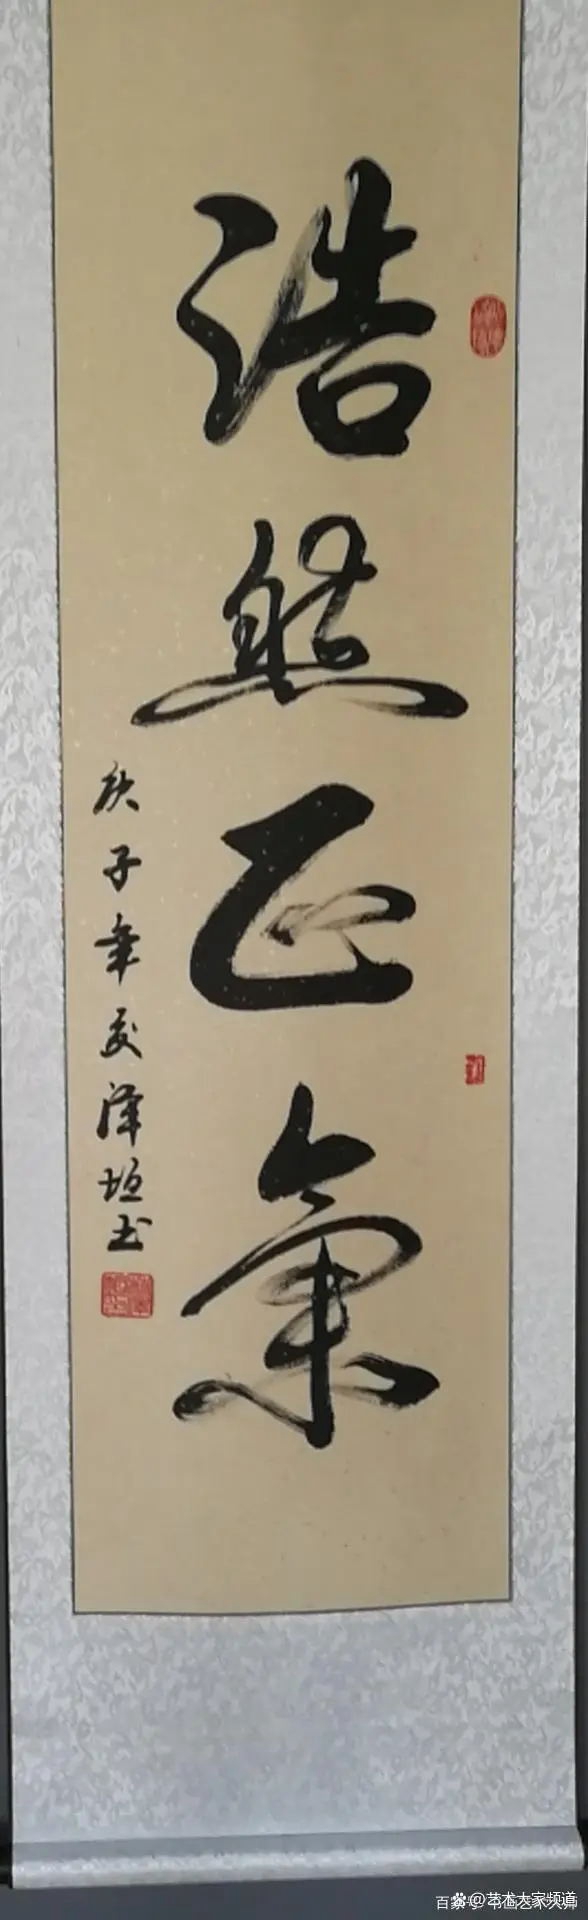 浩然正氣
庚子年夏泽垣书
百家号
艺术大家频道